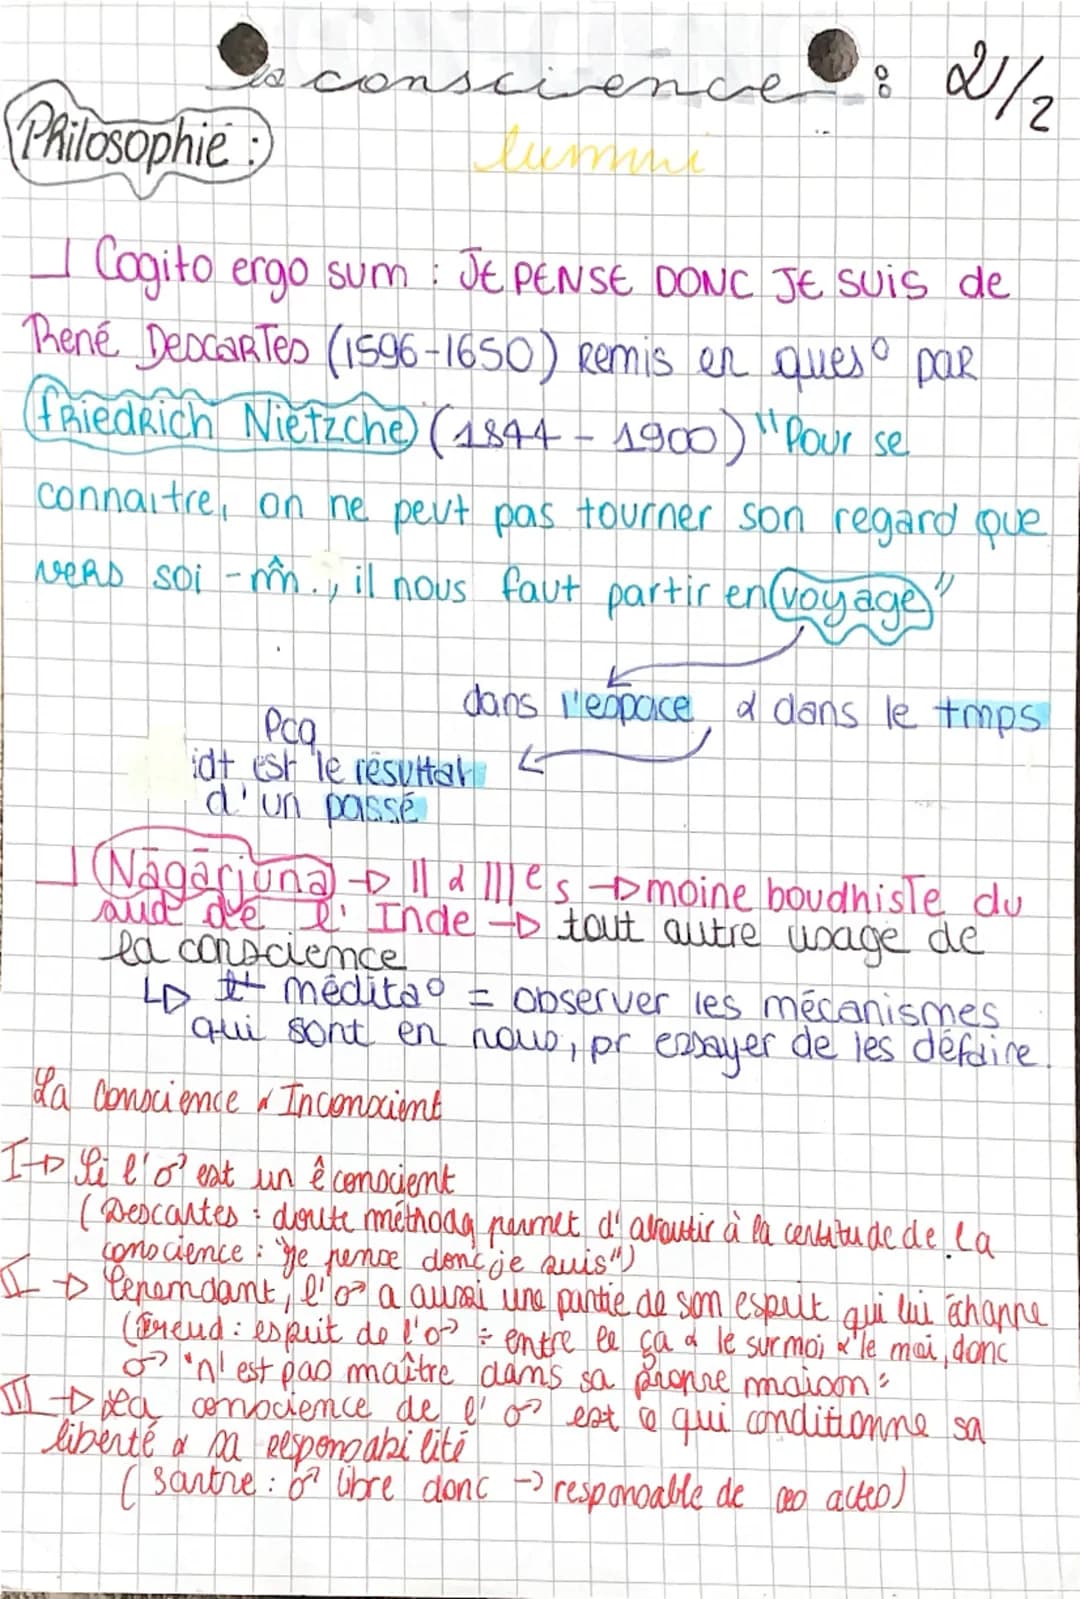 la conscience : 2/2
Philosophie :
lumni
Cogito ergo sum : JE PENSE DONC JE SUIS de
René Descartes (1596-1650) Remis en ques° par
friedrich Nietzche (1844 - 1900) "Pour se
connaitre, on ne peut pas tourner son regard que
vers soi-m̂., il nous faut partir en voyage"
dans l'espace & dans le tmps
Pcq
idt est le résultat
d'un passé
Nāgārjuna → II & IIIe s → moine boudhiste du
sud de l'Inde → tout autre usage de
la conscience
↳ médita° = observer les mécanismes
qui sont en nous, pr essayer de les défaire.
La Conscience & Inconscient
I → Si l'♂ est un ê conscient
(Descartes : doute méthodq permet d'aboutir à la certitude de la
conscience : "je pense donc je suis")
II → Cependant, l'♂ a aussi une partie de son esprit qui lui échappe
(Freud : esprit de l'♂ ÷ entre le ça & le surmoi & le moi, donc
♂ "n'est pas maître dans sa propre maison"
III → La conscience de l'♂ est ce qui conditionne sa
liberté & sa responsabilité
(Sartre : ♂ libre donc → responsable de ses actes)